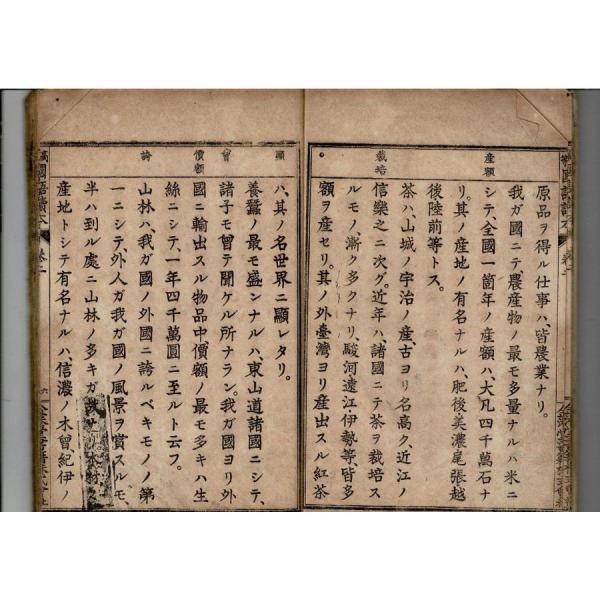 原品ヲ得ル仕事ハ、皆農業ナリ。
我ガ國ニテ農産物ノ最モ多量ナルハ米ニ
シテ、全國一箇年ノ産額ハ、大凡四千萬石ナ
リ。其ノ産地ノ有名ナルハ、肥後美濃尾張越
後陸前等トス。
茶ハ、山城ノ宇治ノ産、古ヨリ名高ク、近江ノ
信樂之ニ次グ。近年ハ諸國ニテ茶ヲ栽培ス
ルモノ、漸ク多クナリ、駿河遠江伊勢等、皆多
額ヲ産セリ。其ノ外臺灣ヨリ産出スル紅茶
産額
栽培
ハ、其ノ名世界ニ顯レタリ。
養蠶ノ最モ盛ンナルハ、東山道諸國ニシテ、
諸子モ曾テ聞ケル所ナラン。我ガ國ヨリ外
國ニ輸出スル物品中、價額ノ最モ多キハ生
絲ニシテ、一年四千萬圓ニ至ルト云フ。
山林ハ、我ガ國ノ外國ニ誇ルベキモノノ第
一ニシテ、外人ガ我ガ國ノ風景ヲ賞スルモ、
半ハ到ル處ニ山林ノ多キガ
産地トシテ有名ナルハ、信濃ノ木曾、紀伊ノ
顯
曾
價額
誇
國語讀本 卷二
六